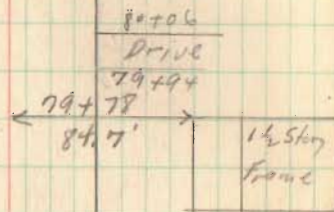 80+06
Drive
79+94
79+78
84.7'
1½ Story
Frame